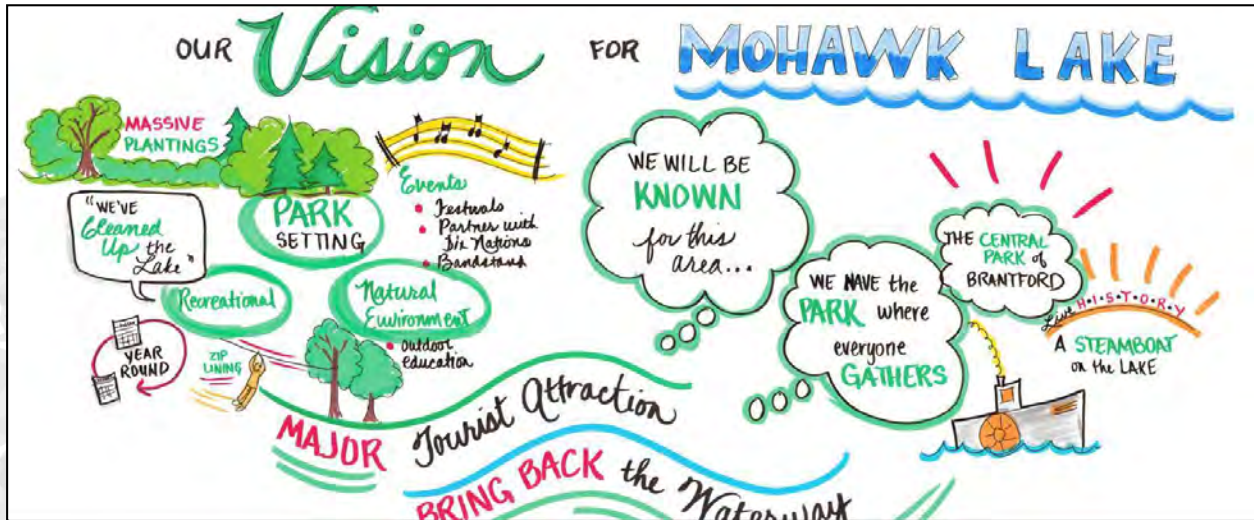 OUR Vision FOR MOHAWK LAKE
MASSIVE
PLANTINGS
"WE'VE
Cleaned
Up the
Lake"
PARK
SETTING
Events
• Festivals
• Partner with
Six Nations
• Bandstand
Recreational
Natural
Environment
• Outdoor
education
YEAR
ROUND
ZIP
LINING
WE WILL BE
KNOWN
for this
area...
WE HAVE the
PARK where
everyone
GATHERS
THE CENTRAL
PARK of
BRANTFORD
Live H•I•S•T•O•R•Y
A STEAMBOAT
on the LAKE
MAJOR Tourist Attraction
BRING BACK the Waterway